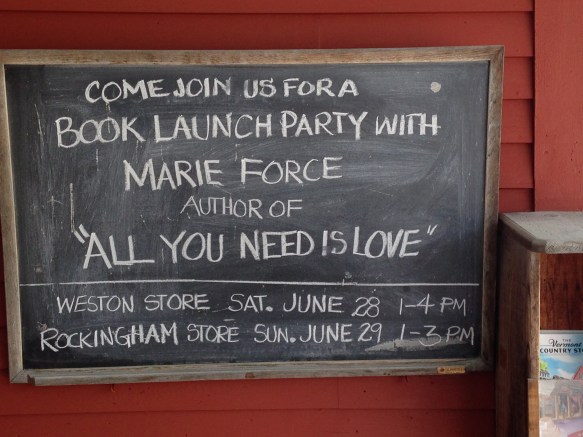 COME JOIN US FOR A
BOOK LAUNCH PARTY WITH
MARIE FORCE
AUTHOR OF
"ALL YOU NEED IS LOVE"
WESTON STORE SAT. JUNE 28 1-4 PM
ROCKINGHAM STORE SUN. JUNE 29 1-3 PM
THE
Vermont
COUNTRY ST